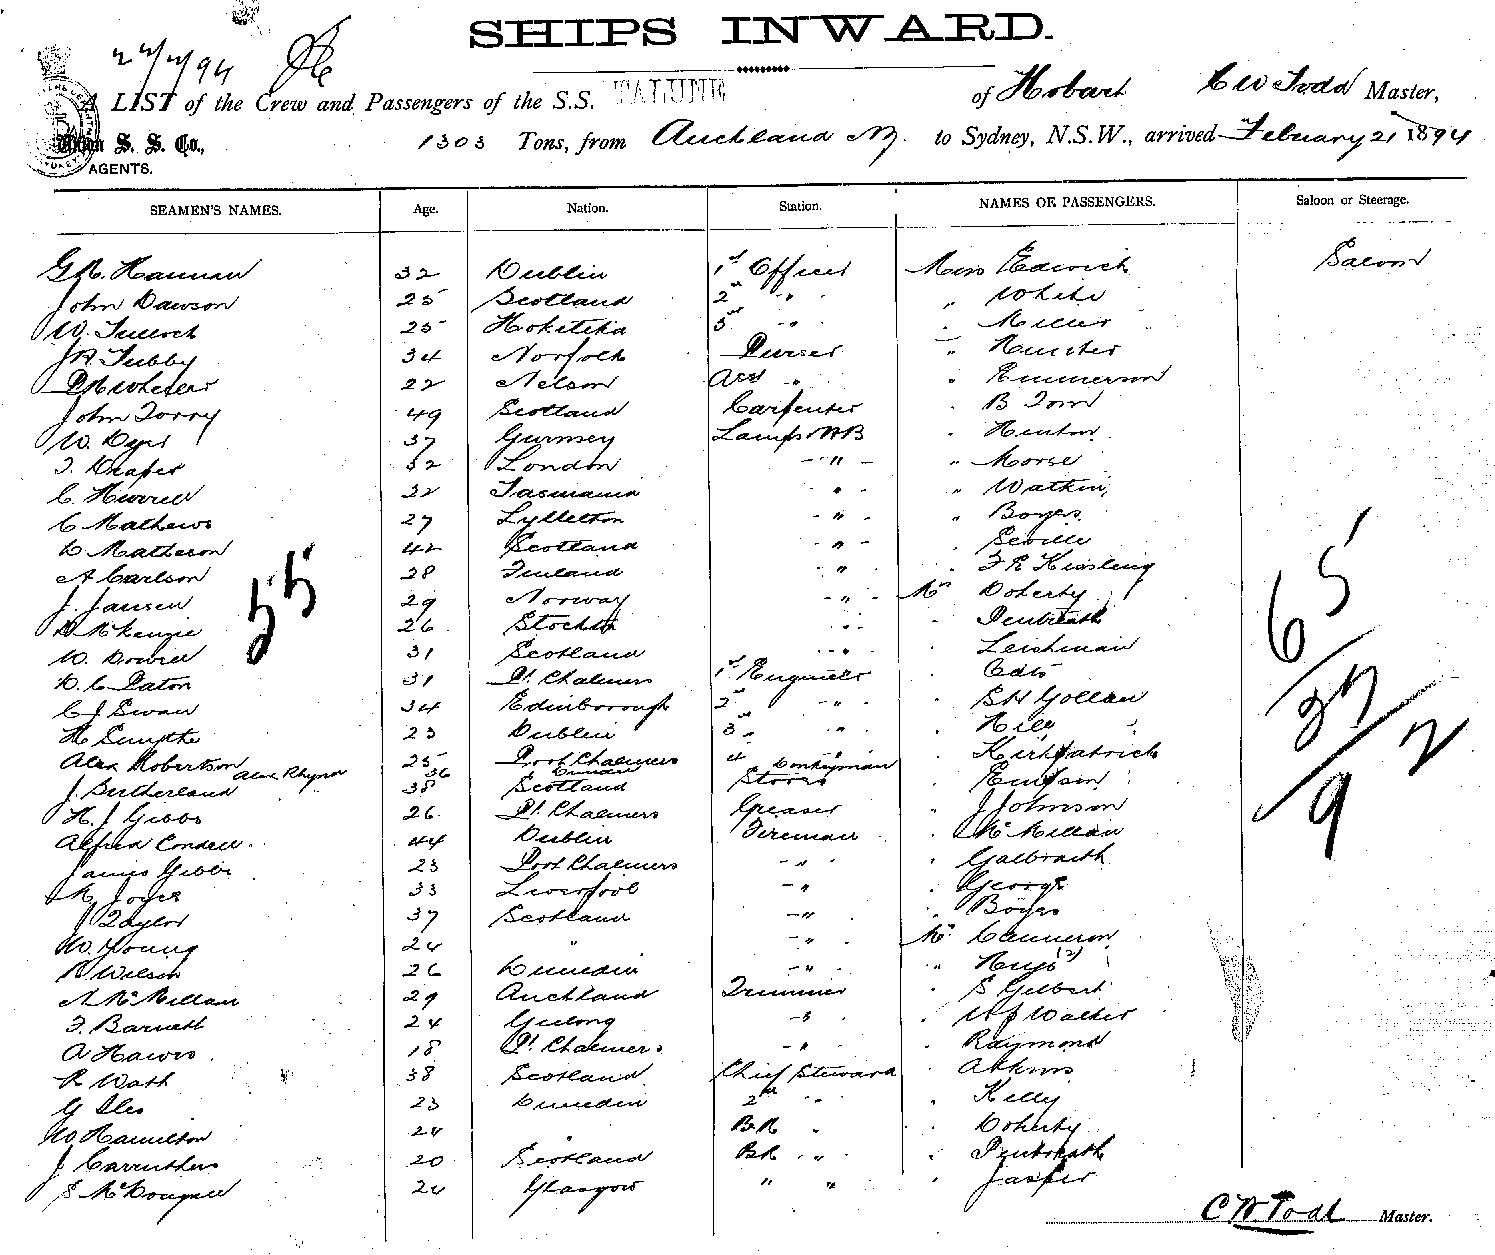 SHIPS INWARD.
22/2/94
A LIST of the Crew and Passengers of the S.S. TALUNE of Hobart C W Todd Master,
Union S. S. Co., 1303 Tons, from Auckland NZ. to Sydney, N.S.W., arrived February 21 1894
AGENTS.
SEAMEN'S NAMES. Age. Nation. Station. NAMES OF PASSENGERS. Saloon or Steerage.
32 Dublin 1st Officer Miss Saloon
John Dawson 25 Scotland 2nd " " White
W. Tulloch 25 Hokitika 3rd " " Miller
J R Tubby 34 Norfolk Purser " Hunter
Wheeler 22 Nelson Asst " " Emmerson
John Torry 49 Scotland Carpenter " B Torr
W. Dyer 37 Gurnsey Lamps AB " Henton
T. Draper 32 London " " Morse
C. Hurrell 32 Tasmania " " Watkin
C Mathews 27 Lyttelton " " Boyes
D Matheson 42 Scotland " " Seville
A Carlson 28 Finland " " F R Kissling
J. Jansen 29 Norway " Mrs Doherty
D McKenzie 26 " " Pentreath
W. 31 Scotland " " Leishman
D. C Paton 31 Pt. Chalmers 1st Engineer "
C J Swan 34 Edinborough 2nd " " S H Gollan
H Smythe 23 Dublin 3rd " " Hill
Alex Robertson 25 Port Chalmers 4 " " Kirkpatrick
Alex Rhynd 36 Dunedin Donkeyman
J. Sutherland 38 Scotland Stores "
H. J Gibbs 26 Pt. Chalmers Greaser " J Johnson
Alfred Condell 44 Dublin Fireman " McMillan
James Gibbs 23 Port Chalmers " " Galbraith
R Joyce 33 Liverpool " " George
J Taylor 37 Scotland " " Boyes
W. Young 24 " " Mr Cameron
R Wilson 26 Dunedin " " Keys (2)
A McMillan 29 Auckland Trimmer " S Gilbert
F. Barnett 24 Geelong " " Walker
A Hawes 18 Pt. Chalmers " " Raymond
R Wath 38 Scotland Chief Steward " Atkins
G Iles 23 Dunedin 2nd " " Kelly
W Hamilton 24 " BR " " Doherty
J Carruthers 20 Scotland BR " " Pentreath
S McDougall 24 Glasgow " " " Jasper
55
65
37
2
9
C W Todd Master.